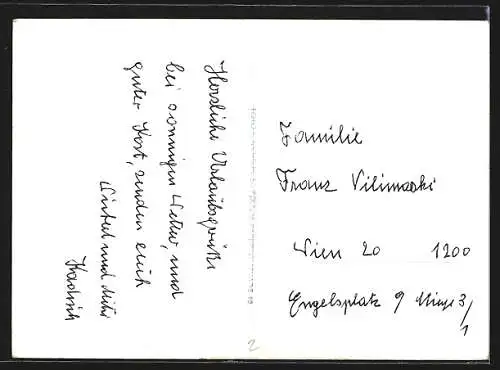 Herzliche Urlaubsgrüße
bei sonnigem Wetter, und
guter Kost, senden euch
und
Familie
Franz Vilimaski
Wien 20 1200
Engelsplatz 9 3/1
2